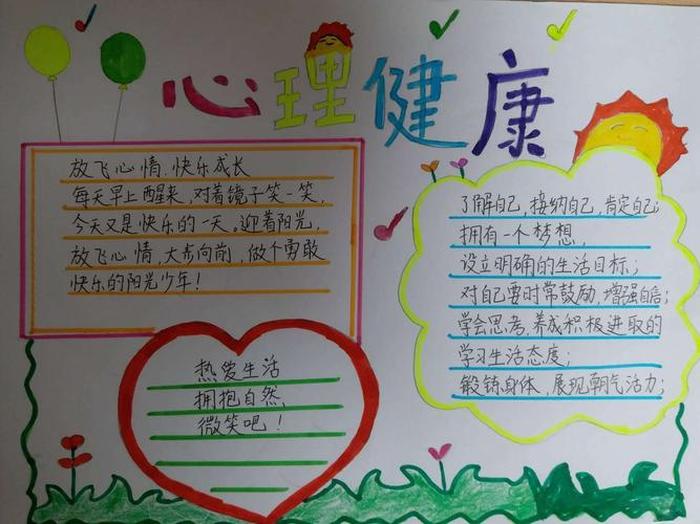 心理健康
放飞心情,快乐成长
每天早上醒来,对着镜子笑一笑,
今天又是快乐的一天。迎着阳光,
放飞心情,大步向前,做个勇敢
快乐的阳光少年!
热爱生活
拥抱自然,
微笑吧!
了解自己,接纳自己,肯定自己;
拥有一个梦想,
设立明确的生活目标;
对自己要时常鼓励,增强自信;
学会思考,养成积极进取的
学习生活态度;
锻铼身体,展现朝气活力;